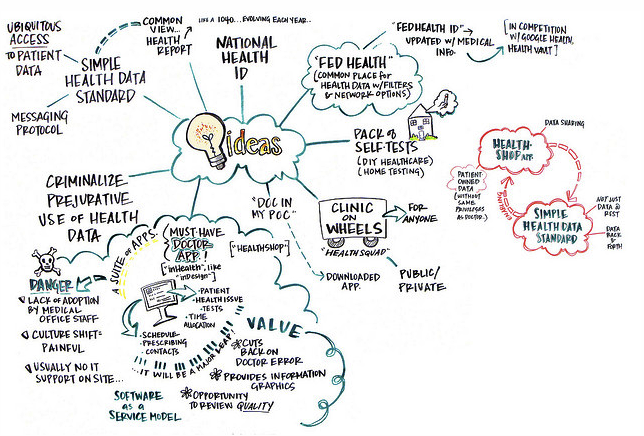 UBIQUITOUS
ACCESS
TO PATIENT
DATA
SIMPLE
HEALTH DATA
STANDARD
MESSAGING
PROTOCOL
COMMON
VIEW...
HEALTH
REPORT
LIKE A 1040... EVOLVING EACH YEAR...
NATIONAL
HEALTH
ID
"FED HEALTH"
(COMMON PLACE FOR
HEALTH DATA W/FILTERS
& NETWORK OPTIONS)
"FEDHEALTH ID"
UPDATED W/ MEDICAL
INFO.
[IN COMPETITION
W/ GOOGLE HEALTH,
HEALTH VAULT]
ideas
PACK of
SELF-TESTS
(DIY HEALTHCARE)
(HOME TESTING)
DATA SHARING
HEALTH-
SHOP APP
PATIENT
OWNED
DATA
(WITHOUT
SAME
PRIVILEGES
AS DOCTOR.)
SIMPLE
HEALTH DATA
STANDARD
NOT JUST
DATA @
REST
DATA
BACK &
FORTH
CRIMINALIZE
PREJURATIVE
USE OF HEALTH
DATA
"DOC IN
MY POC"
CLINIC
ON
WHEELS
"HEALTH SQUAD"
FOR
ANYONE
DOWNLOADED
APP.
PUBLIC/
PRIVATE
A SUITE OF APPS
MUST HAVE
DOCTOR
APP!
["inHealth", like
"inDesign"]
["HEALTHSHOP"]
DANGER
LACK OF ADOPTION
BY MEDICAL
OFFICE STAFF
CULTURE SHIFT=
PAINFUL
USUALLY NO IT
SUPPORT ON SITE...
• PATIENT
• HEALTH ISSUE
• TESTS
• TIME
ALLOCATION
• SCHEDULE
• PRESCRIBING
• CONTACTS
...IT WILL BE A MAJOR LEAP!
VALUE
CUTS
BACK ON
DOCTOR ERROR
PROVIDES INFORMATION
GRAPHICS
OPPORTUNITY
TO REVIEW QUALITY
SOFTWARE
as a
SERVICE MODEL